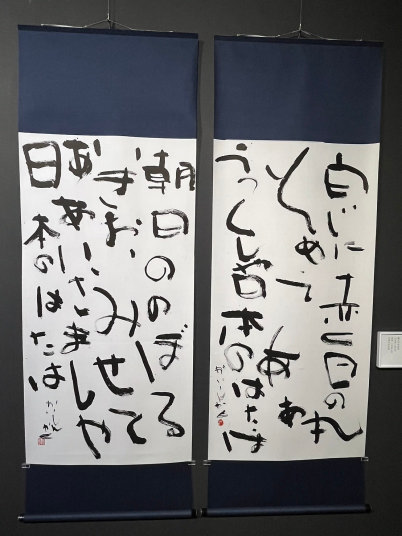 白じに赤く日の丸
そめてああ
うつくしや日本のはたは
朝日ののぼる
いきおいみせて
ああいさましや
日本のはたは